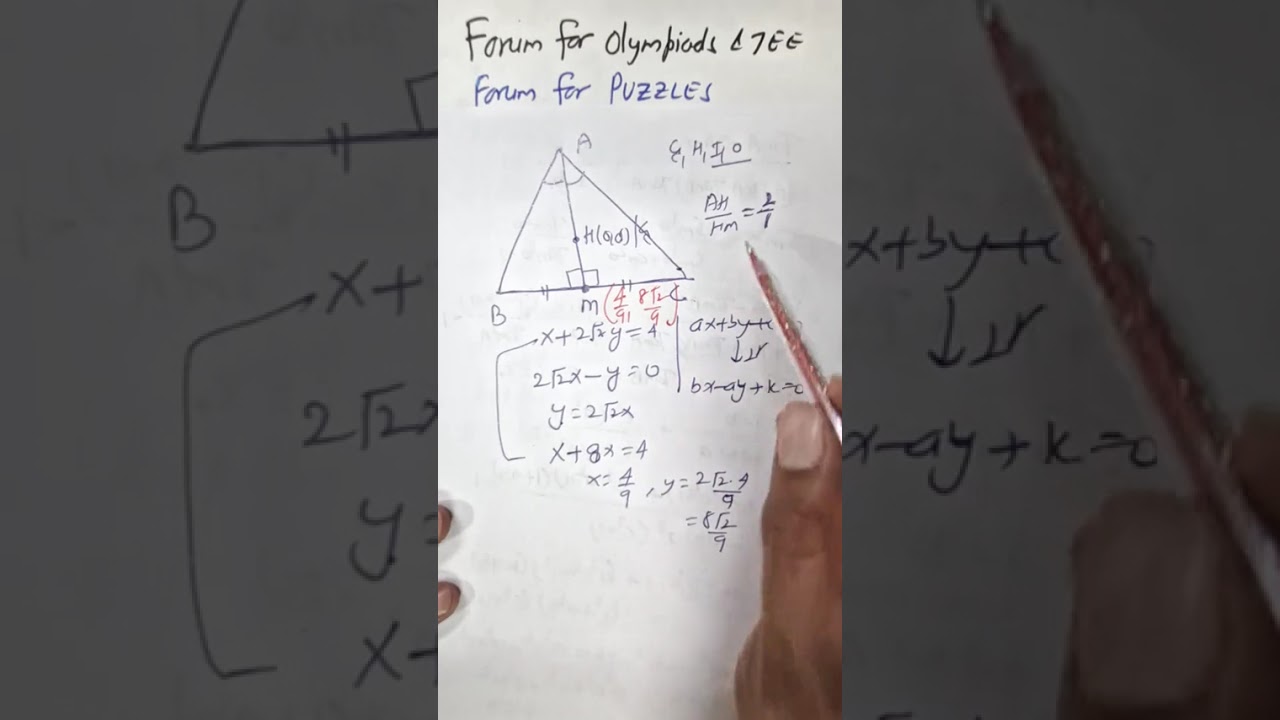 Forum for Olympiads & JEE
Forum for PUZZLES
A
G, H, I, O
AH/HM = 2/1
H(0,0)
B
M (4/9, 8√2/9)
C
x+2√2y=4
2√2x-y=0
y=2√2x
x+8x=4
x=4/9, y=2√2·4/9
=8√2/9
ax+by+c
↓⊥r
bx-ay+k=0
B
x+
2√2x
y=
x-
x+by+c
↓⊥r
x-ay+k=0